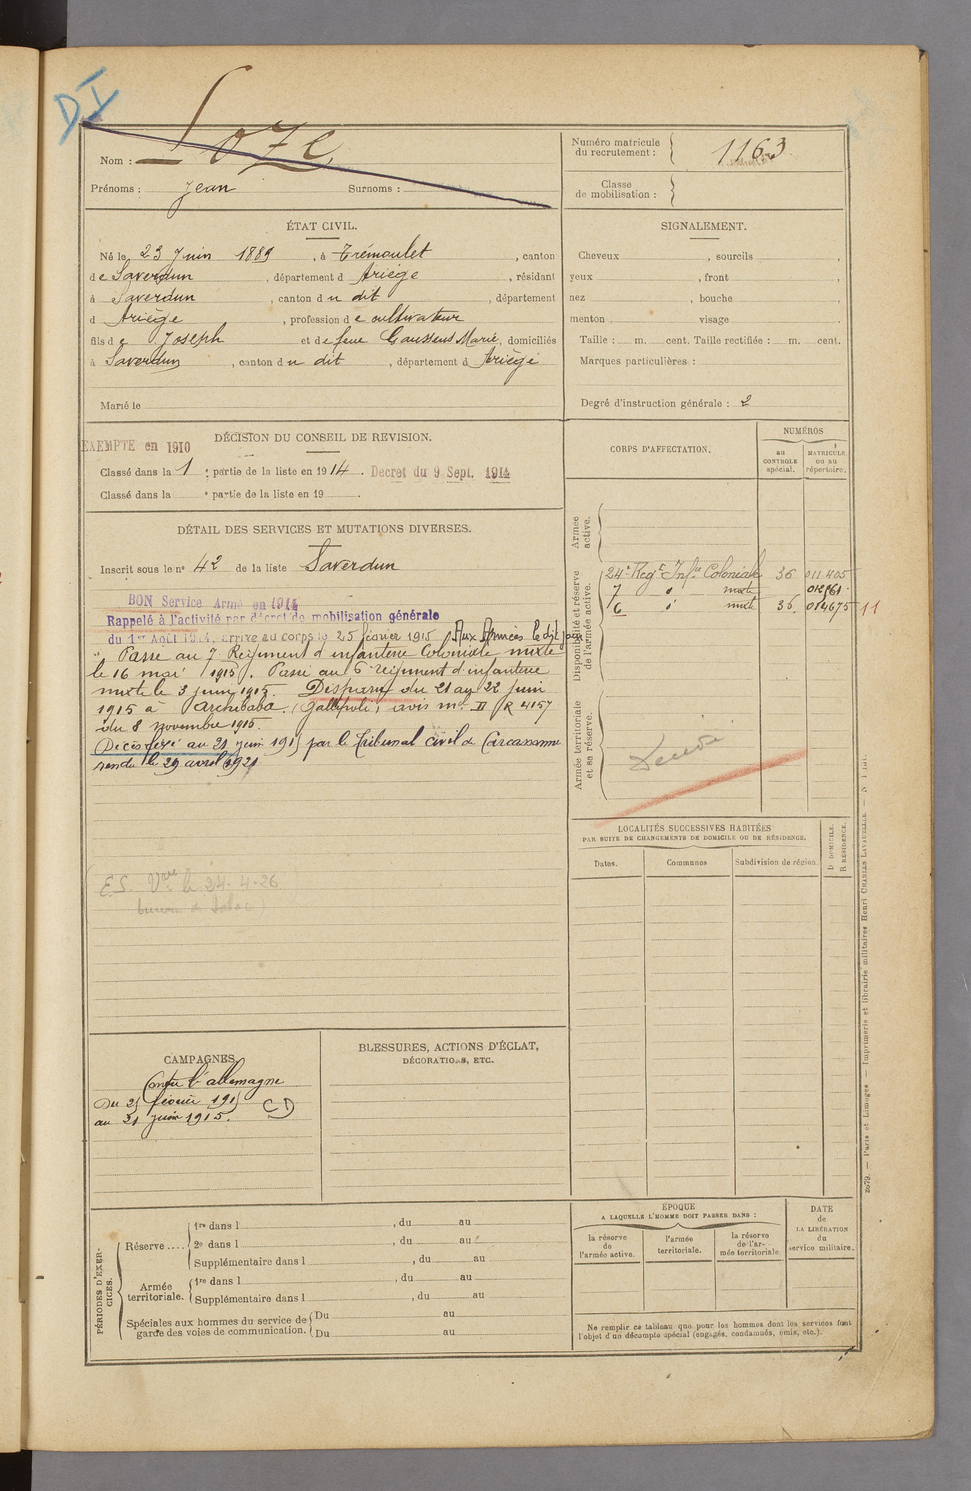 DI
Nom : Loze
Prénoms : Jean Surnoms :
Numéro matricule
du recrutement : 1163
Classe
de mobilisation :
ÉTAT CIVIL.
Né le 23 Juin 1889, à Trémoulet, canton
de Saverdun, département d Ariège, résidant
à Saverdun, canton du dit, département
d Ariège, profession de cultivateur
fils de Joseph et de feue Goussens Marie, domiciliés
à Saverdun, canton du dit, département d Ariège
Marié le
SIGNALEMENT.
Cheveux , sourcils ,
yeux , front ,
nez , bouche ,
menton , visage
Taille : m. cent. Taille rectifiée : m. cent.
Marques particulières :
Degré d'instruction générale : 2
EXEMPTÉ en 1910
DÉCISION DU CONSEIL DE REVISION.
Classé dans la 1 partie de la liste en 1914. Decret du 9 Sept. 1914
Classé dans la partie de la liste en 19 .
DÉTAIL DES SERVICES ET MUTATIONS DIVERSES.
Inscrit sous le n° 42 de la liste Saverdun
BON Service Armé en 1914
Rappelé à l'activité par décret de mobilisation générale
du 1er Août 1914, arrivé au corps le 25 février 1915 Aux Armées le dit jour
Passé au 7e Régiment d'infanterie Coloniale mixte
le 16 mai 1915. Passé au 6e régiment d'infanterie
mixte le 3 juin 1915. Disparu du 21 au 22 juin
1915 à Archibaba (Gallipoli) avis mel II R 4157
du 8 novembre 1915.
Décès fixé au 21 juin 1915 par le Tribunal civil de Carcassonne
rendu le 29 avril 1921
E.S. Vve le 24-4-26
CORPS D'AFFECTATION.
NUMÉROS
au
CONTROLE
spécial.
MATRICULE
ou au
répertoire.
Armée
active.
Disponibilité et réserve
de l'armée active.
24e Regt Infie Coloniale 36 011405
7 " mixte
6 " mixte 36 014675 11
Armée territoriale
et sa réserve.
LOCALITÉS SUCCESSIVES HABITÉES
PAR SUITE DE CHANGEMENTS DE DOMICILE OU DE RÉSIDENCE.
Dates.
Communes
Subdivision de région.
D DOMICILE.
R RÉSIDENCE.
CAMPAGNES.
Contre l'allemagne
Du 25 février 1915
au 21 juin 1915. CD
BLESSURES, ACTIONS D'ÉCLAT,
DÉCORATIONS, ETC.
PÉRIODES D'EXERCICES.
Réserve ....
1re dans l , du au
2e dans l , du au
Supplémentaire dans l , du au
Armée
territoriale.
1re dans l , du au
Supplémentaire dans l , du au
Spéciales aux hommes du service de
garde des voies de communication.
Du au
Du au
ÉPOQUE
A LAQUELLE L'HOMME DOIT PASSER DANS :
la réserve
de
l'armée active.
l'armée
territoriale.
la réserve
de l'ar-
mée territoriale
DATE
de
LA LIBÉRATION
du
service militaire.
Ne remplir ce tableau que pour les hommes dont les services font
l'objet d'un décompte spécial (engagés, condamnés, omis, etc.).
Paris et Limoges. — Imprimerie et librairie militaires Henri CHARLES-LAVAUZELLE.